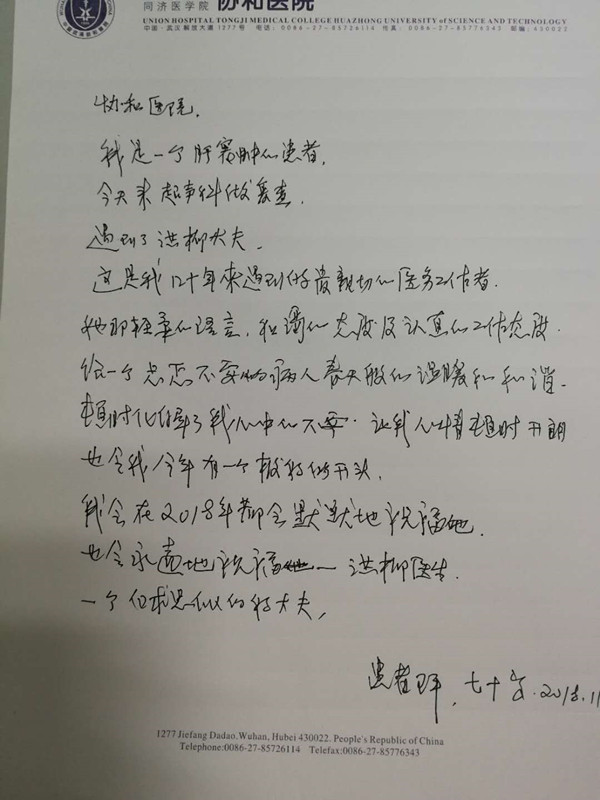 同济医学院 协和医院
UNION HOSPITAL TONGJI MEDICAL COLLEGE HUAZHONG UNIVERSITY of SCIENCE AND TECHNOLOGY
中国·武汉解放大道1277号 电话:0086-27-85726114 传真:0086-27-85776343 邮编:430022
协和医院.
我是一个肝囊肿的患者,
今天来超声科做复查.
遇到了洪柳大夫.
这是我几十年来遇到的最亲切的医务工作者.
她那轻柔的语言,和蔼的态度及认真的工作态度.
给一个忐忑不安的病人春天般的温暖和和谐.
顿时化解了我心中的不安.让我心情顿时开朗
也令我今年有一个极好的开头.
我会在2018年都会默默地祝福她.
也会永远地祝福她一洪柳医生.
一个 的好大夫,
患者 ,七十岁.2018.11
1277 Jiefang Dadao,Wuhan, Hubei 430022. People's Republic of China
Telephone:0086-27-85726114 Telefax:0086-27-85776343